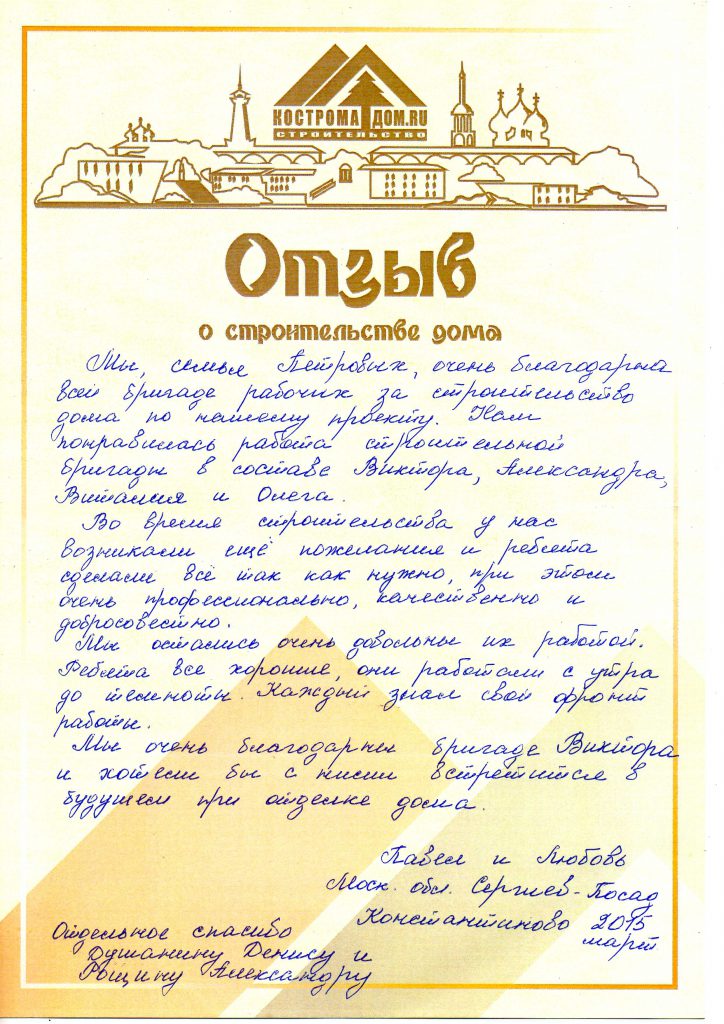 КОСТРОМА ДОМ.RU
СТРОИТЕЛЬСТВО
Отзыв
о строительстве дома
Мы, семья Петровых, очень благодарна
всей бригаде рабочих за строительство
дома по нашему проекту. Нам
понравилась работа строительной
бригады в составе Виктора, Александра,
Виталия и Олега.
Во время строительства у нас
возникали ещё пожелания и ребята
сделали всё так как нужно, при этом
очень профессионально, качественно и
добросовестно.
Мы остались очень довольны их работой.
Ребята все хорошие, они работали с утра
до темноты. Каждый знал свой фронт
работы.
Мы очень благодарны бригаде Виктора
и хотели бы с ними встретится в
будущем при отделке дома.
Павел и Любовь
Моск. обл. Сергиев-Посад
Константиново 2015
март
Отдельное спасибо
Душанину Денису и
Рыщину Александру